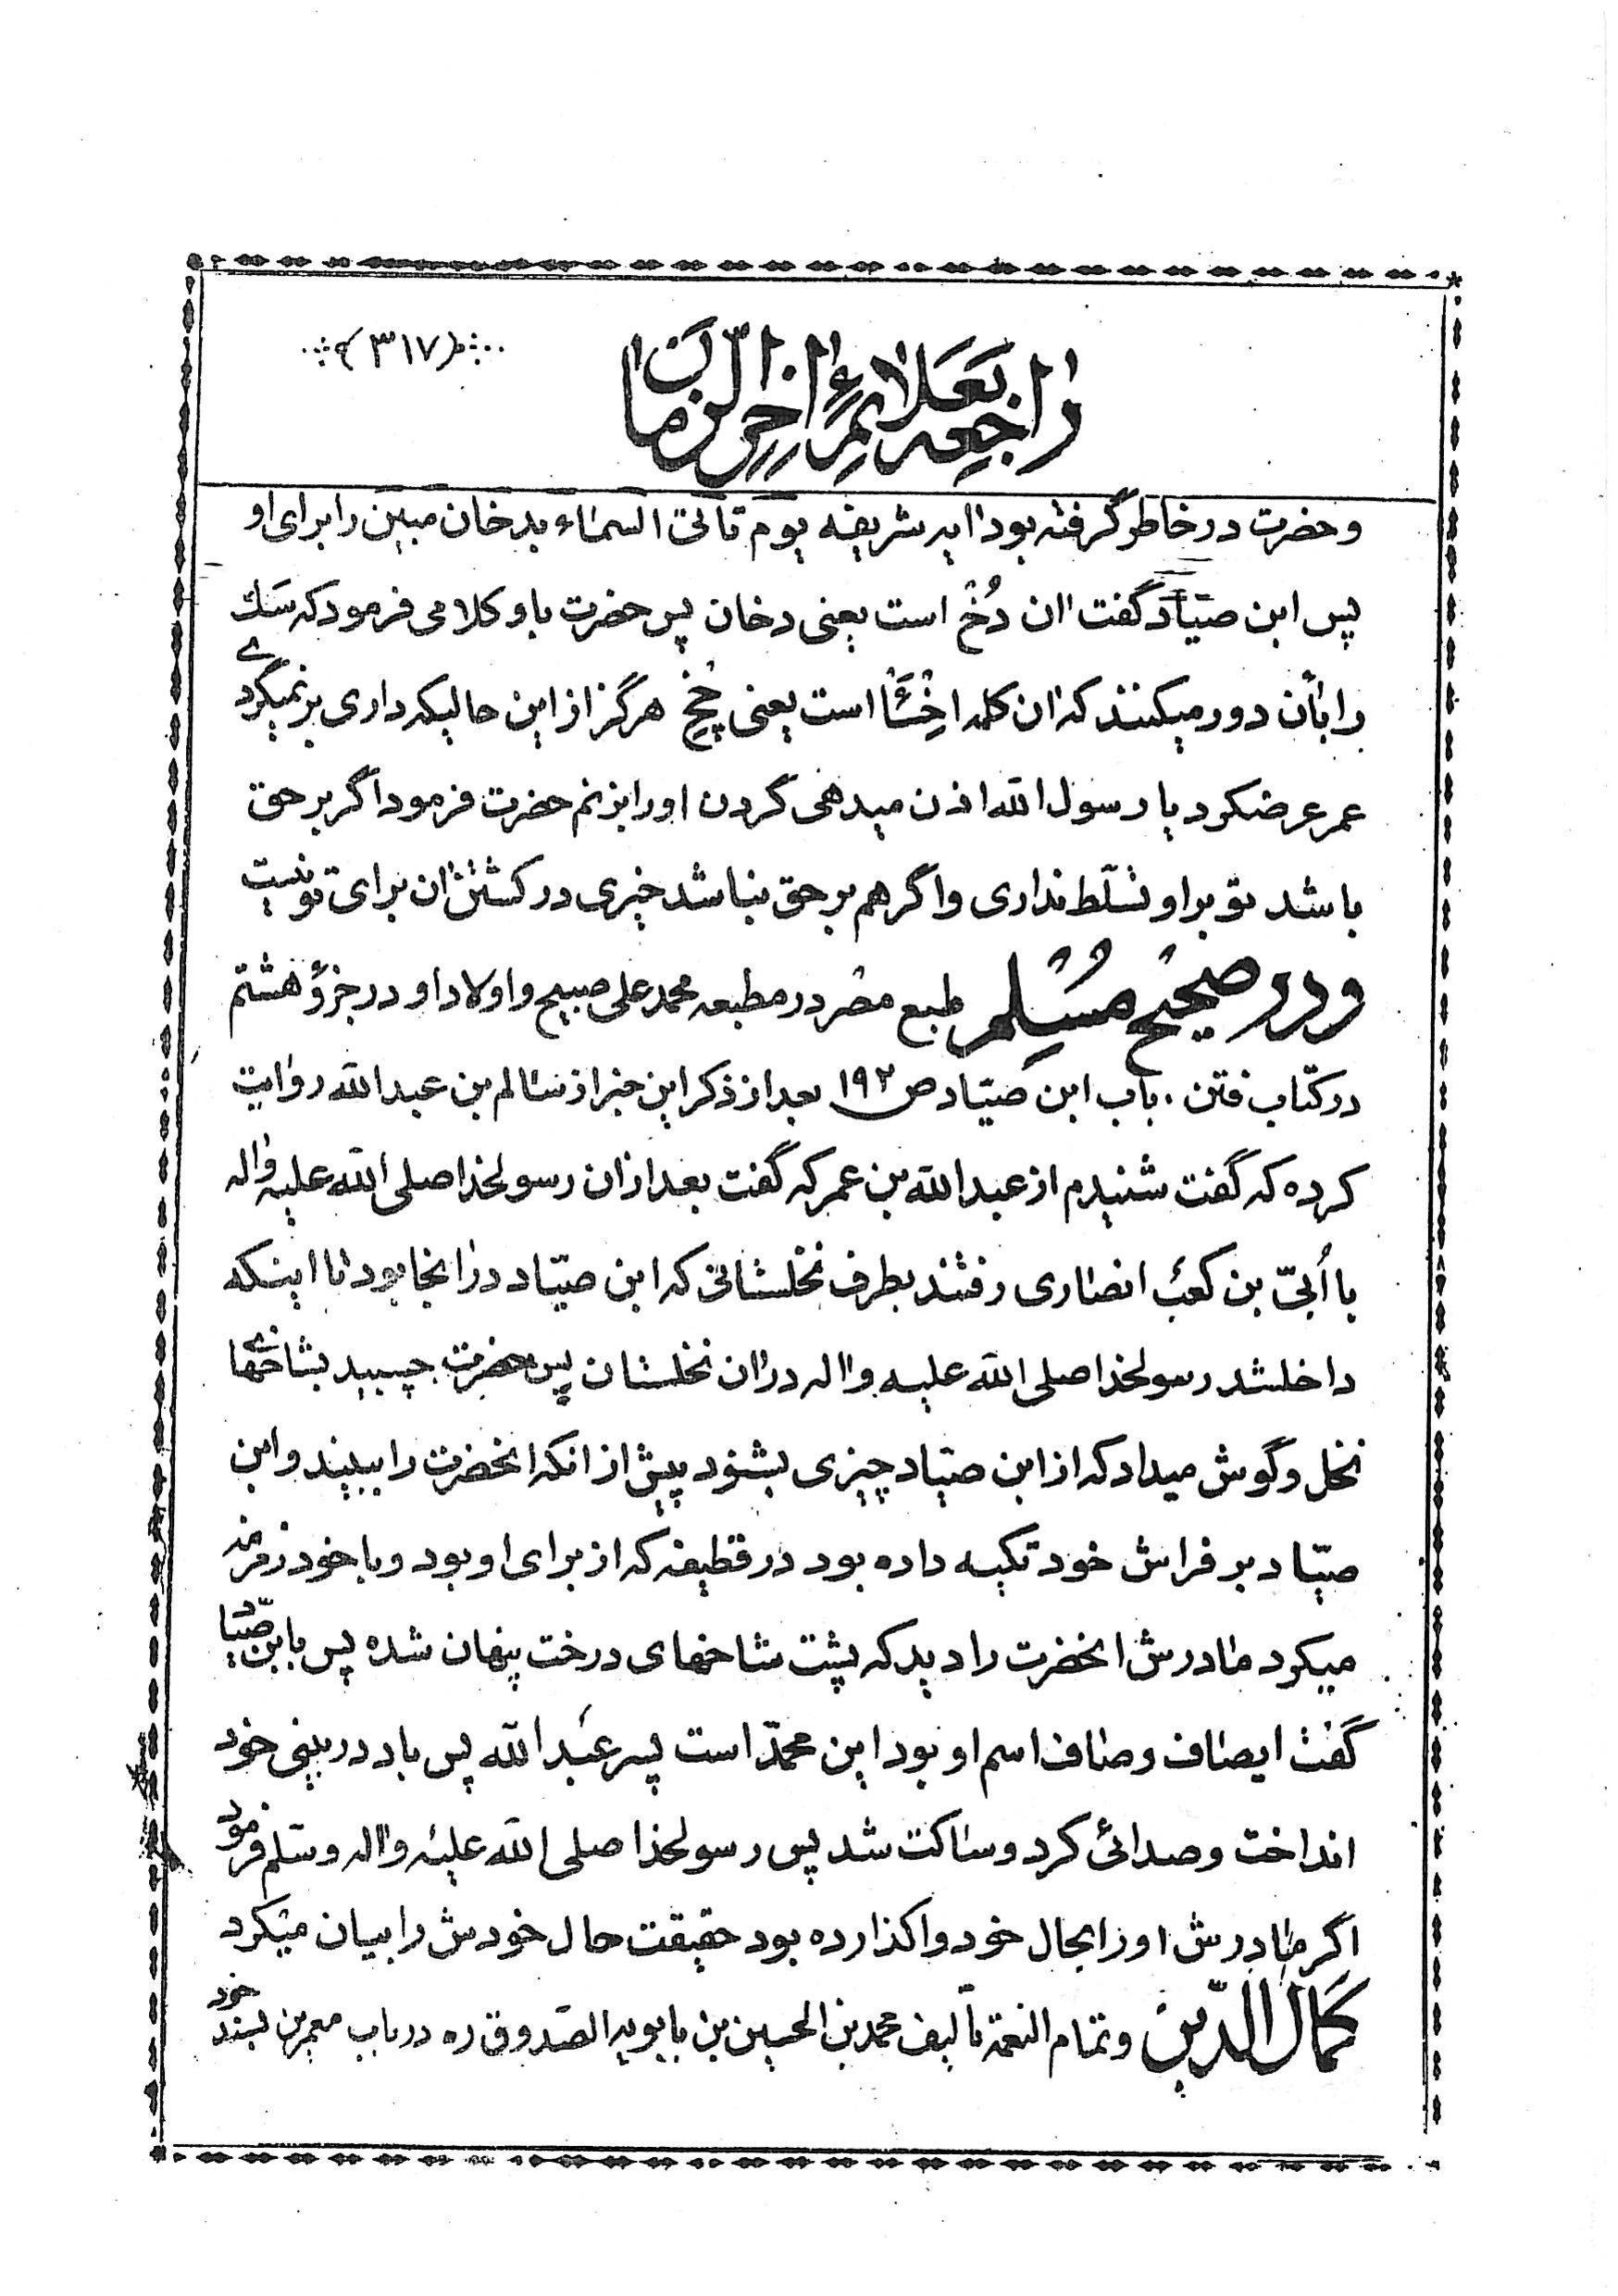 (۳۱۷)
راجعه بعلائم اخر الزمان
و حضرت در خاطر گرفته بود ایه شریفه یوم تاتی السماء بدخان مبین را برای او
پس ابن صیّاد گفت ان دُخّ است یعنی دخان پس حضرت باو کلامی فرمود که سَك
را بأن دور میکنند که ان کلمه اِخْسَأ است یعنی چُخِ هرگز از این حالیکه داری برنمیگردی
عمر عرضکرد یا رسول الله اذن میدهی گردن او را بزنم حضرت فرمود اگر بر حق
باشد تو بر او تسلّط نداری و اگر هم بر حق نباشد خیری در کشتن ان برای تو نیست
و در صحیح مُسْلِم طبع مصر در مطبعه محمد علی صبیح و اولاد او در جزؤ هشتم
در کتاب فتن . باب ابن صیّاد ص ۱۹۲ بعد از ذکر این خبر از سالم بن عبد الله روایت
کرده که گفت شنیدم از عبد الله بن عمر که گفت بعد از ان رسولخدا صلی الله علیه واله
با اُبیّ بن کعب انصاری رفتند بطرف نخلستانی که ابن صیّاد در انجا بود تا اینکه
داخلشد رسولخدا صلی الله علیه واله در ان نخلستان پس حضرت چسبید بشاخهای
نخل و گوش میداد که از ابن صیّاد چیزی بشنود پیش از انکه انحضرت را ببیند و ابن
صیّاد بر فراش خود تکیه داده بود در قطیفه که از برای او بود و با خود زمزمه
میکرد مادرش انحضرت را دید که پشت شاخهای درخت پنهان شده پس بابن صیّاد
گفت ایصاف و صاف اسم او بود این محمدّ است پسر عَبد الله پس باد در بینی خود
انداخت و صدائی کرد و ساکت شد پس رسولخدا صلی الله علیه واله وسلم فرمود
اگر مادرش او را بحال خود واکذارده بود حقیقت حال خودش را بیان میکرد
کَمالُ الدّین وتمام النعمة تألیف محمد بن الحسین بن بابویه الصّدوق ره در باب معمرین بسند خود